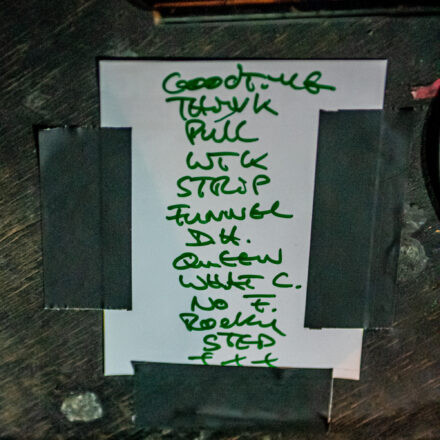 GOODTIME
THINK
PULL
WTK
STRIP
FUNNEL
D.H.
QUEEN
WHAT C.
NO F.
Rocky
STEP
+++